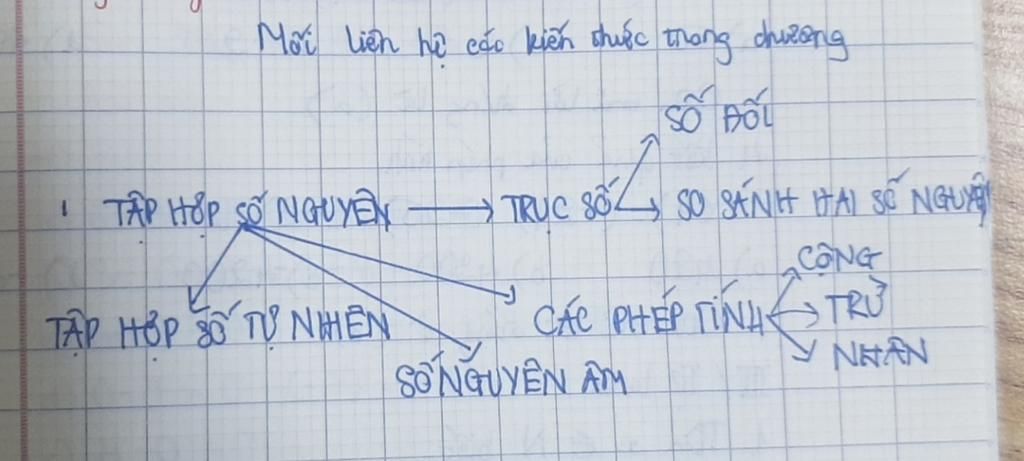 Mối liên hệ các kiến thức trong chương
SỐ ĐỐI
1 TẬP HỢP SỐ NGUYÊN TRỤC SỐ SO SÁNH HAI SỐ NGUYÊN
CỘNG
TẬP HỢP SỐ TỰ NHIÊN CÁC PHÉP TÍNH TRỪ
NHÂN
SỐ NGUYÊN ÂM